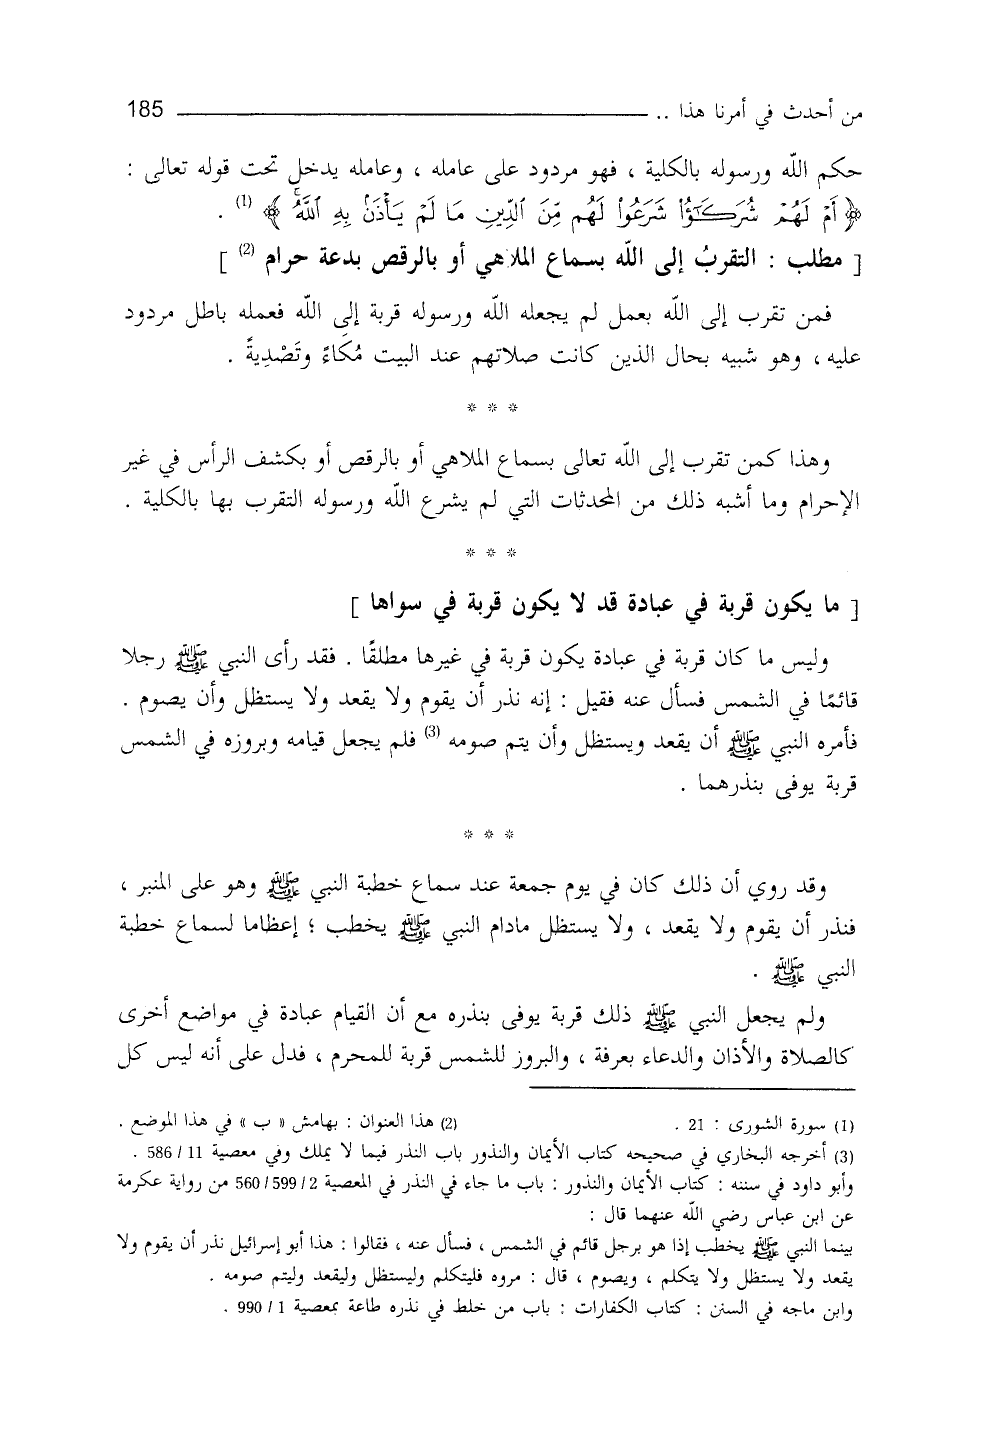 من أحدث في أمرنا هذا .. 185
حكم الله ورسوله بالكلية ، فهو مردود على عامله ، وعامله يدخل تحت قوله تعالى :
﴿ أَمْ لَهُمْ شُرَكَٰٓؤُا۟ شَرَعُوا۟ لَهُم مِّنَ ٱلدِّينِ مَا لَمْ يَأْذَنۢ بِهِ ٱللَّهُ ۚ ﴾ (1) .
[ مطلب : التقربُ إلى الله بسماع الملاهي أو بالرقص بدعة حرام (2) ]
فمن تقرب إلى الله بعمل لم يجعله الله ورسوله قربة إلى الله فعمله باطل مردود
عليه ، وهو شبيه بحال الذين كانت صلاتهم عند البيت مُكَاءً وتَصْدِيةً .
* * *
وهذا كمن تقرب إلى الله تعالى بسماع الملاهي أو بالرقص أو بكشف الرأس في غير
الإحرام وما أشبه ذلك من المحدثات التي لم يشرع الله ورسوله التقرب بها بالكلية .
* * *
[ ما يكون قربة في عبادة قد لا يكون قربة في سواها ]
وليس ما كان قربة في عبادة يكون قربة في غيرها مطلقًا . فقد رأى النبي ﷺ رجلا
قائمًا في الشمس فسأل عنه فقيل : إنه نذر أن يقوم ولا يقعد ولا يستظل وأن يصوم .
فأمره النبي ﷺ أن يقعد ويستظل وأن يتم صومه (3) فلم يجعل قيامه وبروزه في الشمس
قربة يوفى بنذرهما .
* * *
وقد روي أن ذلك كان في يوم جمعة عند سماع خطبة النبي ﷺ وهو على المنبر ،
فنذر أن يقوم ولا يقعد ، ولا يستظل مادام النبي ﷺ يخطب ؛ إعظاما لسماع خطبة
النبي ﷺ .
ولم يجعل النبي ﷺ ذلك قربة يوفى بنذره مع أن القيام عبادة في مواضع أخرى
كالصلاة والأذان والدعاء بعرفة ، والبروز للشمس قربة للمحرم ، فدل على أنه ليس كل
(1) سورة الشورى : 21 . (2) هذا العنوان : بهامش « ب » في هذا الموضع .
(3) أخرجه البخاري في صحيحه كتاب الأيمان والنذور باب النذر فيما لا يملك وفي معصية 11 / 586 .
وأبو داود في سننه : كتاب الأيمان والنذور : باب ما جاء في النذر في المعصية 2 / 599 / 560 من رواية عكرمة
عن ابن عباس رضي الله عنهما قال :
بينما النبي ﷺ يخطب إذا هو برجل قائم في الشمس ، فسأل عنه ، فقالوا : هذا أبو إسرائيل نذر أن يقوم ولا
يقعد ولا يستظل ولا يتكلم ، ويصوم ، قال : مروه فليتكلم وليستظل وليقعد وليتم صومه .
وابن ماجه في السنن : كتاب الكفارات : باب من خلط في نذره طاعة بمعصية 1 / 990 .